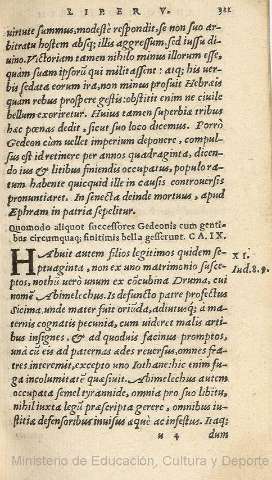 LIBER V. 311
virtute summus, modestè respondit, se non suo ar-
bitratu hostem absq; illis aggressum, sed iussu di-
uino. Victoriam tamen nihilo minus illorum esse,
quàm suam ipsorũ qui militassent: atq; his ver-
bis sedata eorum ira, non minus profuit Hebræis
quàm rebus prospere gestis: obstitit enim ne ciuile
bellum exoriretur. Huius tamen superbiæ tribus
hæc pœnas dedit, sicut suo loco dicemus. Porrò
Gedeon cùm vellet imperium deponere, compul-
sus est id retinere per annos quadraginta, dicen-
do ius & litibus finiendis occupatus, populo ra-
tum habente quicquid ille in causis controuersis
pronuntiaret. In senecta deinde mortuus, apud
Ephram in patria sepelitur.
Quomodo aliquot successores Gedeonis cum genti-
bus circumquaq; finitimis bella gesserunt. CA. IX.
HAbuit autem filios legitimos quidem se- XI.
ptuaginta, non ex vno matrimonio susce- Iud. 8. 9.
ptos, nothũ verò vnum ex cõcubina Druma, cui
nomẽ Abimelechus. Is defuncto patre profectus
Sicima, vnde mater fuit oriũda, adiutusq; à ma-
ternis cognatis pecunia, cum videret malis arti-
bus insignes, & ad quoduis facinus promptos,
vnà cũ eis ad paternas ædes reuersus, omnes fra-
tres interemit, excepto vno Iothane: hic enim fu-
ga incolumitatẽ quæsiuit. Abimelechus autem
occupata semel tyrannide, omnia pro suo libitu,
nihil iuxta legũ præscripta gerere, omnibus iu-
stitiæ defensoribus inuisus æquè ac infestus. Itaq;
u 4 dum
Ministerio de Educación, Cultura y Deporte